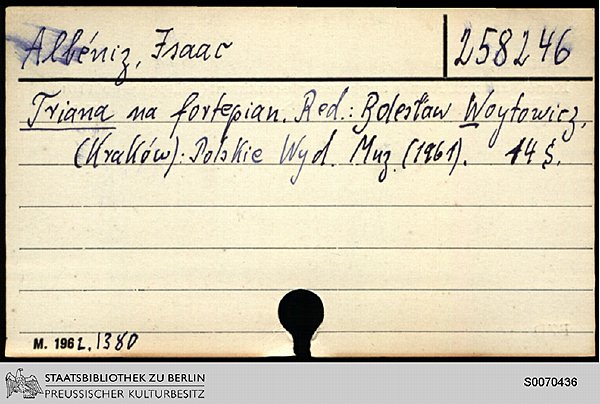 Albéniz, Isaac
258246
Triana na fortepian. Red.: Bolesław Woytowicz.
(Kraków): Polskie Wyd. Muz. (1961). 14 S.
M. 1962.1380
STAATSBIBLIOTHEK ZU BERLIN
PREUSSISCHER KULTURBESITZ
S0070436